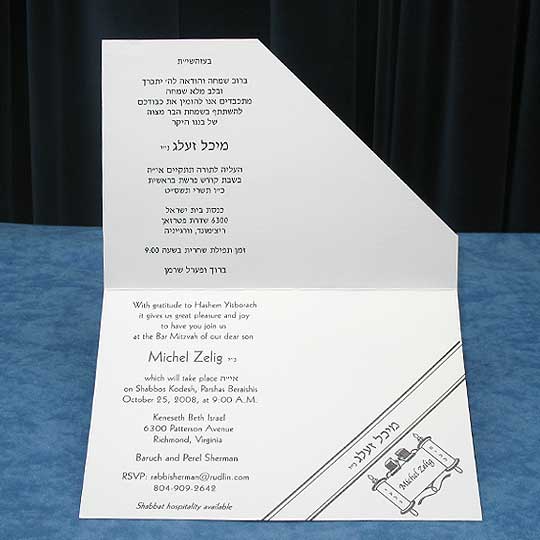 בעזהשי״ת
ברוב שמחה והודאה לה׳ יתברך
ובלב מלא שמחה
מתכבדים אנו להזמין את כבודכם
להשתתף בשמחת הבר מצוה
של בננו היקר
מיכל זעלג ני״ו
העליה לתורה תתקיים אי״ה
בשבת קודש פרשת בראשית
כ״ו תשרי תשס״ט
כנסת בית ישראל
6300 שדרת פטרזאן
ריצימונד, ווירגיניה
זמן תפילת שחרית בשעה 9:00
ברוך ופערל שרמן
With gratitude to Hashem Yisborach
it gives us great pleasure and joy
to have you join us
at the Bar Mitzvah of our dear son
Michel Zelig ני״ו
which will take place אי״ה
on Shabbos Kodesh, Parshas Beraishis
October 25, 2008, at 9:00 A.M.
Keneseth Beth Israel
6300 Patterson Avenue
Richmond, Virginia
Baruch and Perel Sherman
RSVP: rabbisherman@rudlin.com
804-909-2642
Shabbat hospitality available
מיכל זעלג ני״ו
Michel Zelig